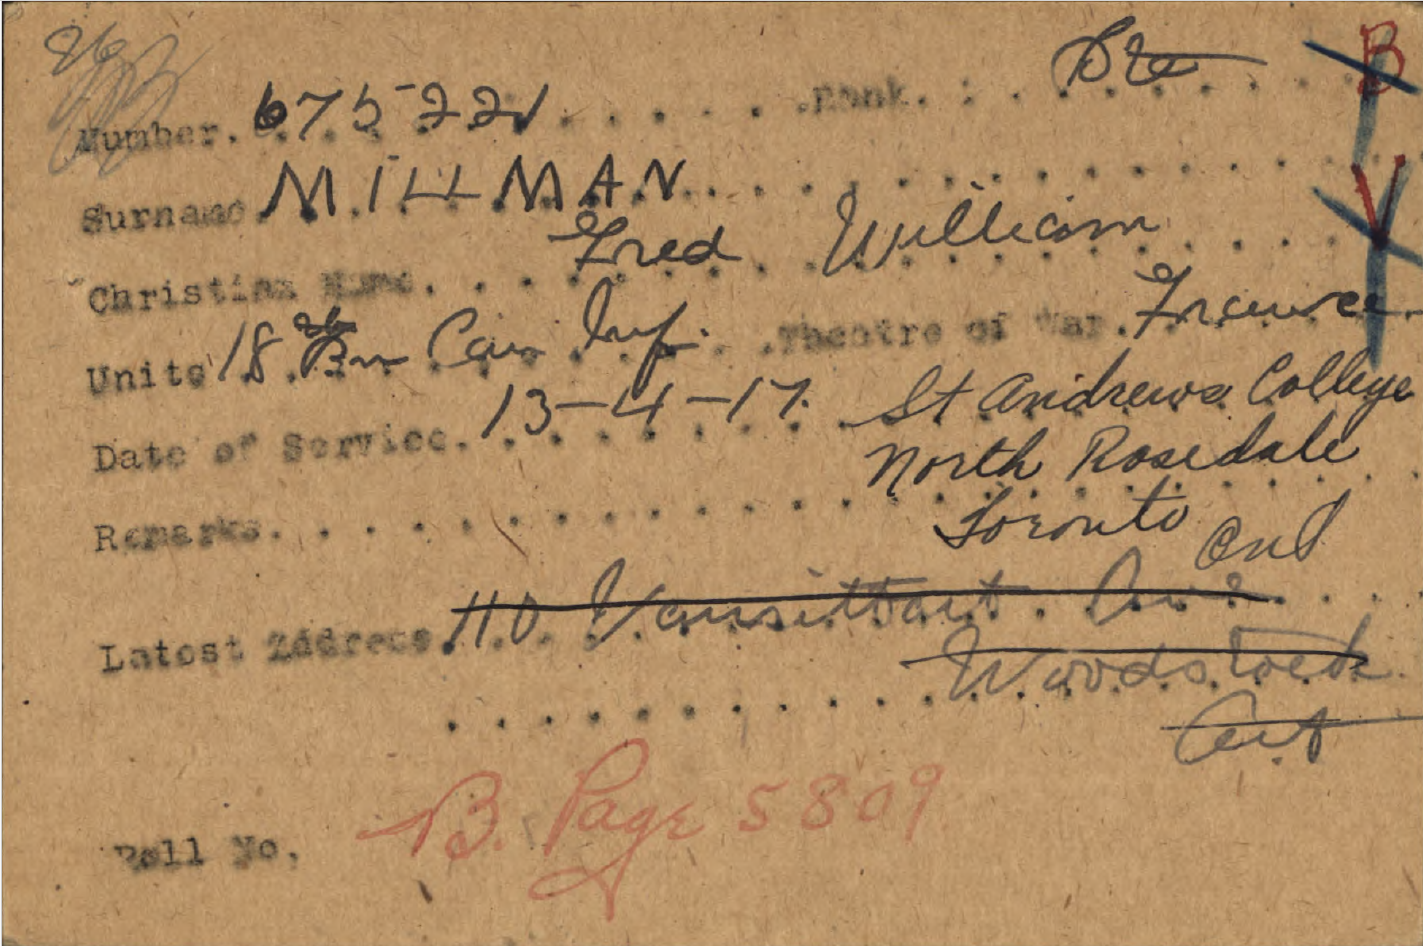 Number. 675221 Rank. Pte B
Surname MILLMAN V
Christian Name. Fred William
Units 18th Bn Can Inf. Theatre of War. France
Date of Service. 13-4-17. St Andrews College
North Rosedale
Remarks. Toronto Ont
Latest Address. 110 Vansittart Av
Woodstock
Ont
Roll No. B. Page 5809